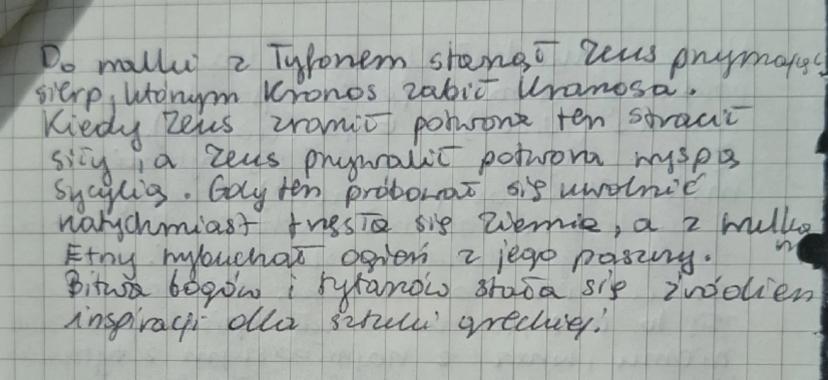 Do walki z Tyfonem stanął Zeus trzymając
sierp, którym Kronos zabił Uranosa.
Kiedy Zeus zranił potwora ten stracił
siły, a Zeus przywalił potwora wyspą
Sycylią. Gdy ten próbował się uwolnić
natychmiast trzęsła się ziemia, a z wulkanu
Etny wybuchał ogień z jego paszczy.
Bitwa bogów i tytanów stała się źródłem
inspiracji dla sztuki greckiej.